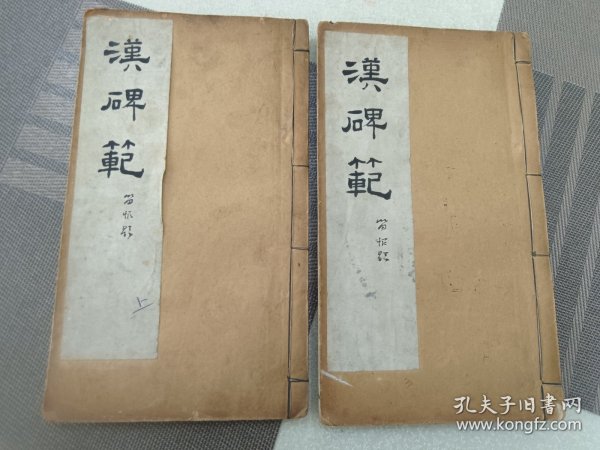 漢碑範
上
漢碑範
孔夫子旧书网
www.kongfz.com